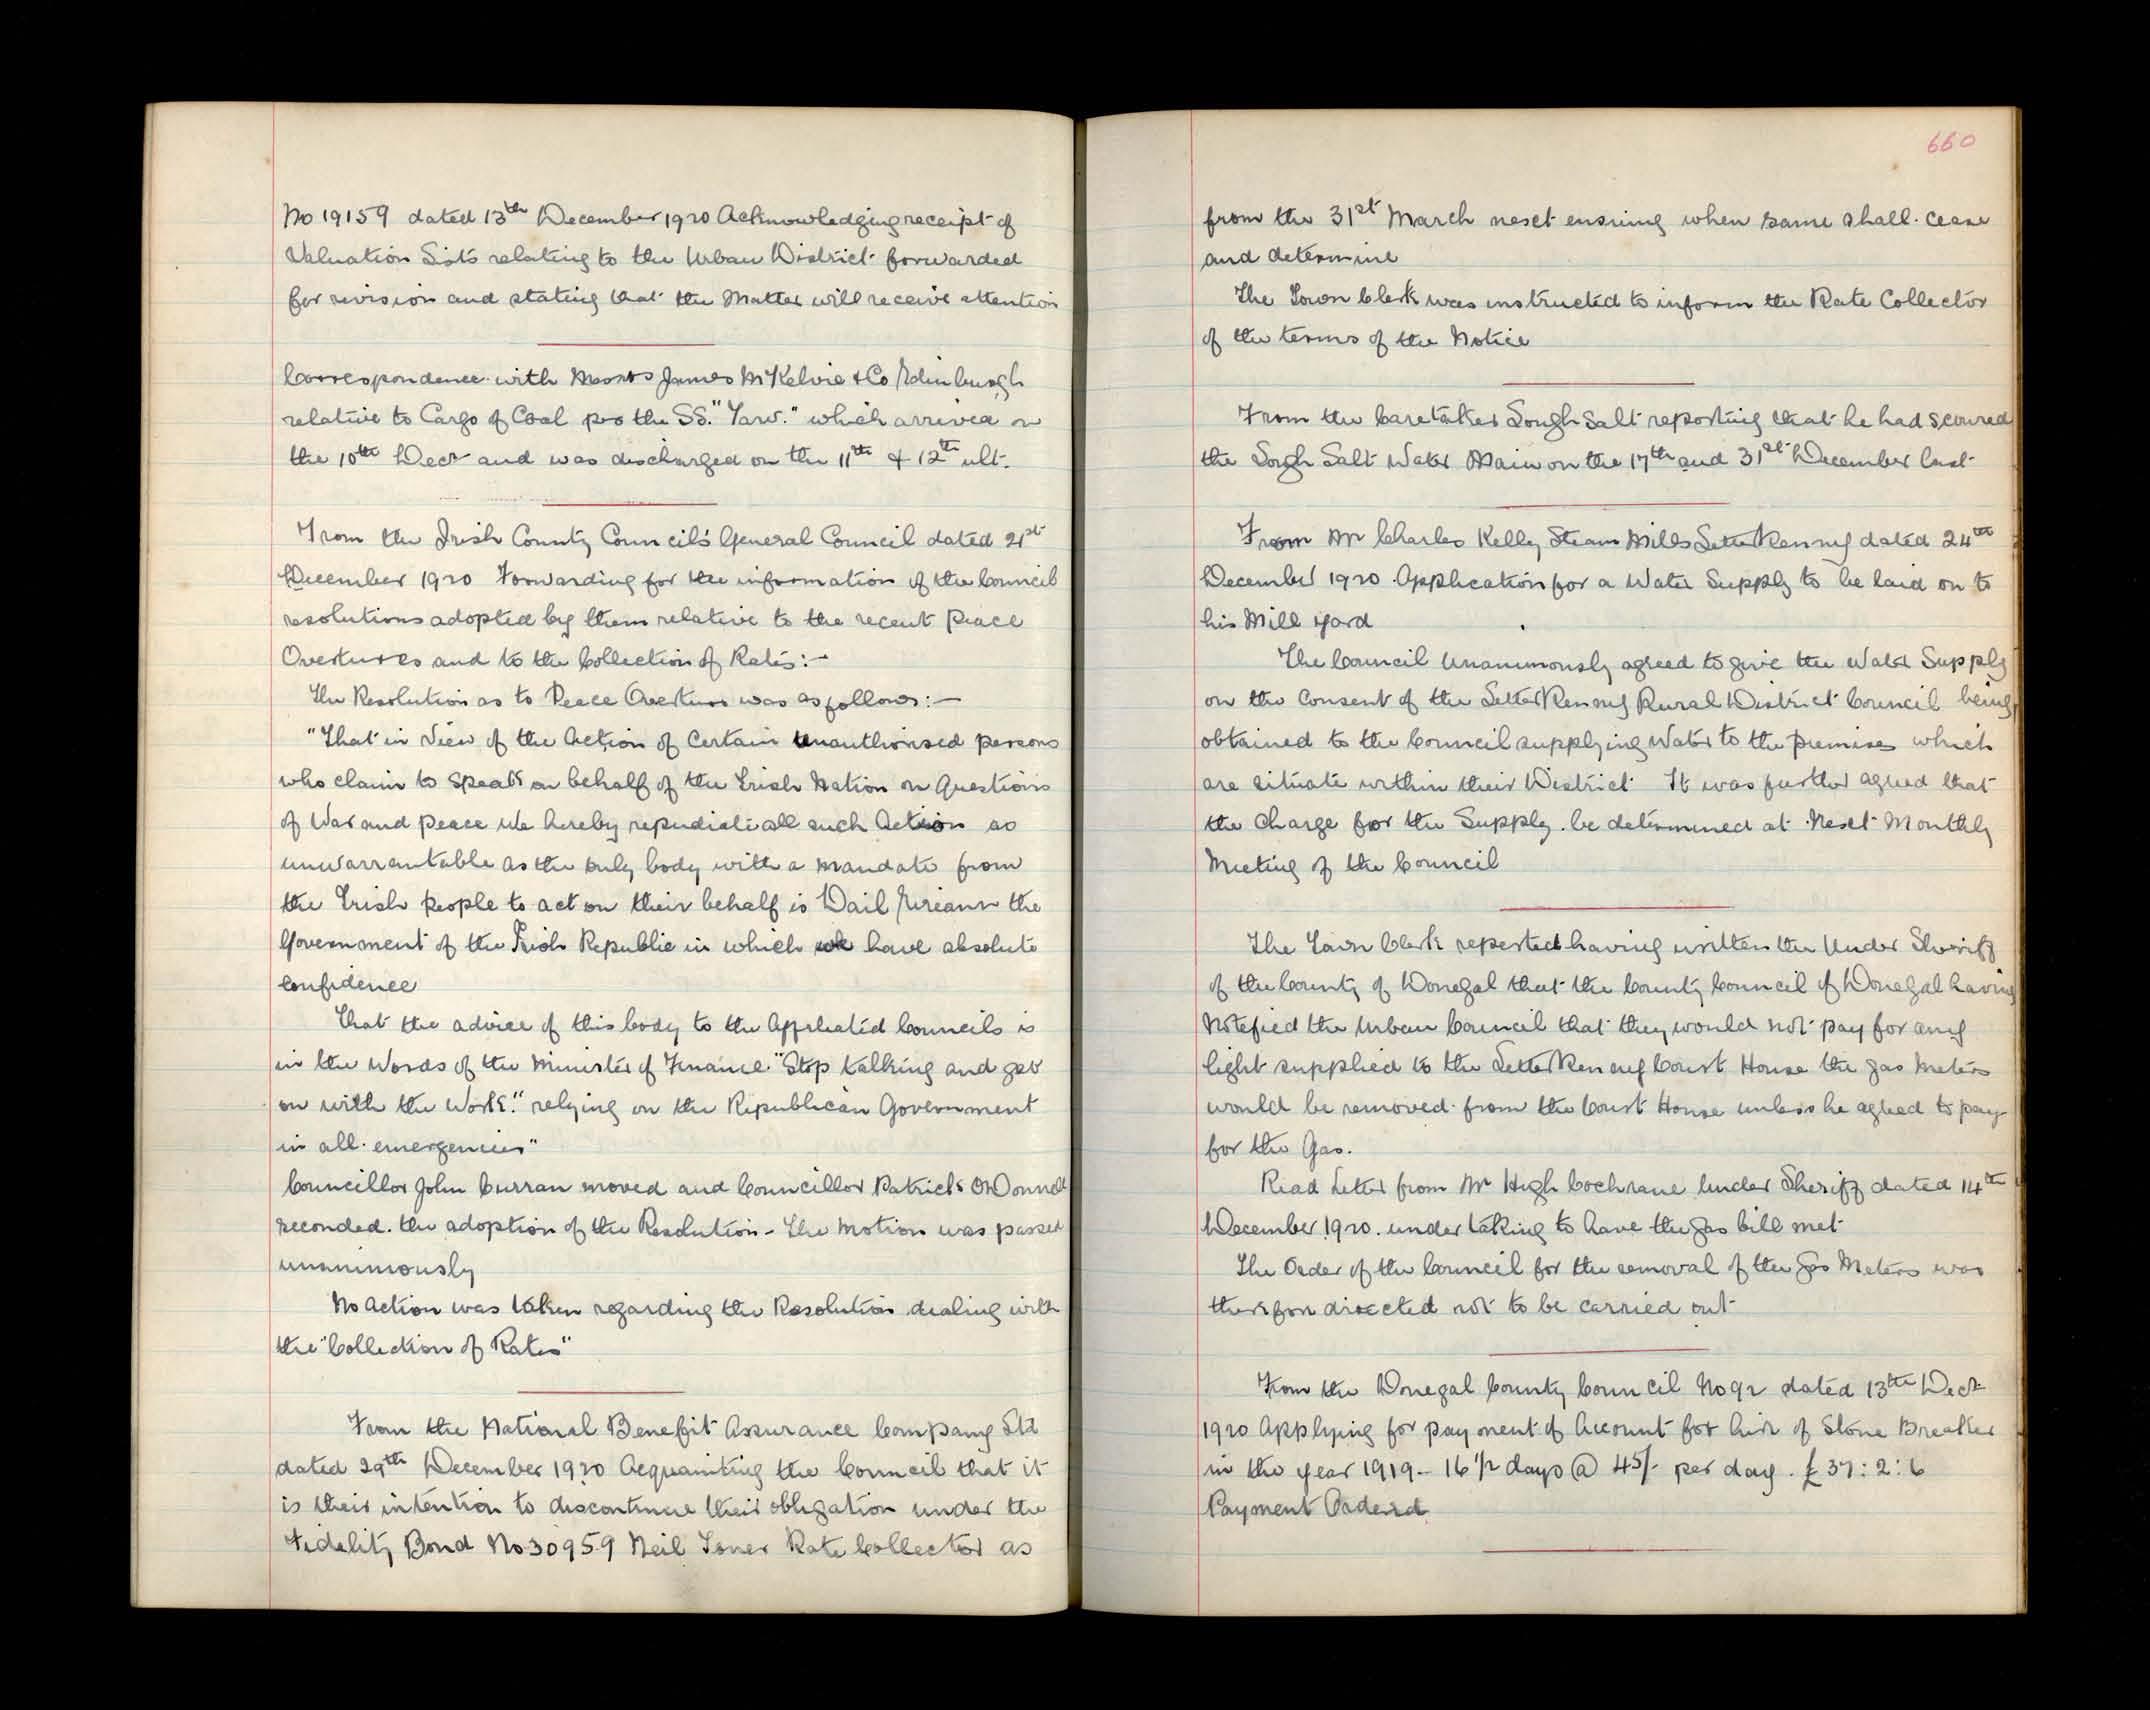 No 19159 dated 13th December 1920 Acknowledging receipt of
Valuation Lists relating to the Urban District forwarded
for revision and stating that the Matter will receive attention
Correspondence with Messrs James McKelvie & Co Edinburgh
relative to Cargo of Coal pro the SS. "Yarv." which arrived on
the 10th Decr and was discharged on the 11th & 12th ult.
From the Irish County Councils' General Council dated 21st
December 1920 Forwarding for the information of the Council
resolutions adopted by them relative to the recent Peace
Overtures and to the Collection of Rates:-
The Resolution as to Peace Overtures was as follows:-
"That in View of the Action of Certain Unauthorised persons
who claim to speak on behalf of the Irish Nation on Questions
of War and peace We hereby repudiate all such Action as
unwarrantable as the only body with a mandate from
the Irish people to act on their behalf is Dail Eireann the
Government of the Irish Republic in which we have absolute
confidence
That the advice of this body to the Affiliated Councils is
in the Words of the Minister of Finance "Stop talking and get
on with the Work." relying on the Republican Government
in all emergencies"
Councillor John Curran moved and Councillor Patrick O'Donnell
seconded the adoption of the Resolution - The Motion was passed
unanimously
No Action was taken regarding the Resolution dealing with
the "Collection of Rates"
From the National Benefit Assurance Company Ltd
dated 29th December 1920 Acquainting the Council that it
is their intention to discontinue their obligation under the
Fidelity Bond No 30959 Neil Toner Rate Collector as
660
from the 31st March next ensuing when same shall cease
and determine
The Town Clerk was instructed to inform the Rate Collector
of the terms of the Notice
From the Caretaker Lough Salt reporting that he had scoured
the Lough Salt Water Main on the 17th and 31st December last
From Mr Charles Kelly Steam Mills Letterkenny dated 24th
December 1920 Application for a Water Supply to be laid on to
his Mill Yard
The Council Unanimously agreed to give the Water Supply
on the Consent of the Letterkenny Rural District Council being
obtained to the Council supplying Water to the premises which
are situate within their District It was further agreed that
the Charge for the Supply be determined at Next Monthly
Meeting of the Council
The Town Clerk reported having written the Under Sheriff
of the County of Donegal that the County Council of Donegal having
Notefied the Urban Council that they would not pay for any
light supplied to the Letterkenny Court House the gas Meters
would be removed from the Court House unless he agreed to pay
for the Gas.
Read Letter from Mr Hugh Cochrane Under Sheriff dated 14th
December 1920. undertaking to have the gas bill met
The Order of the Council for the removal of the gas Meters was
therefore directed not to be carried out
From the Donegal County Council No 92 dated 13th Decr
1920 Applying for payment of Account for hire of Stone Breaker
in the year 1919 - 16 1/2 days @ 45/- per day. £37:2:6
Payment Ordered